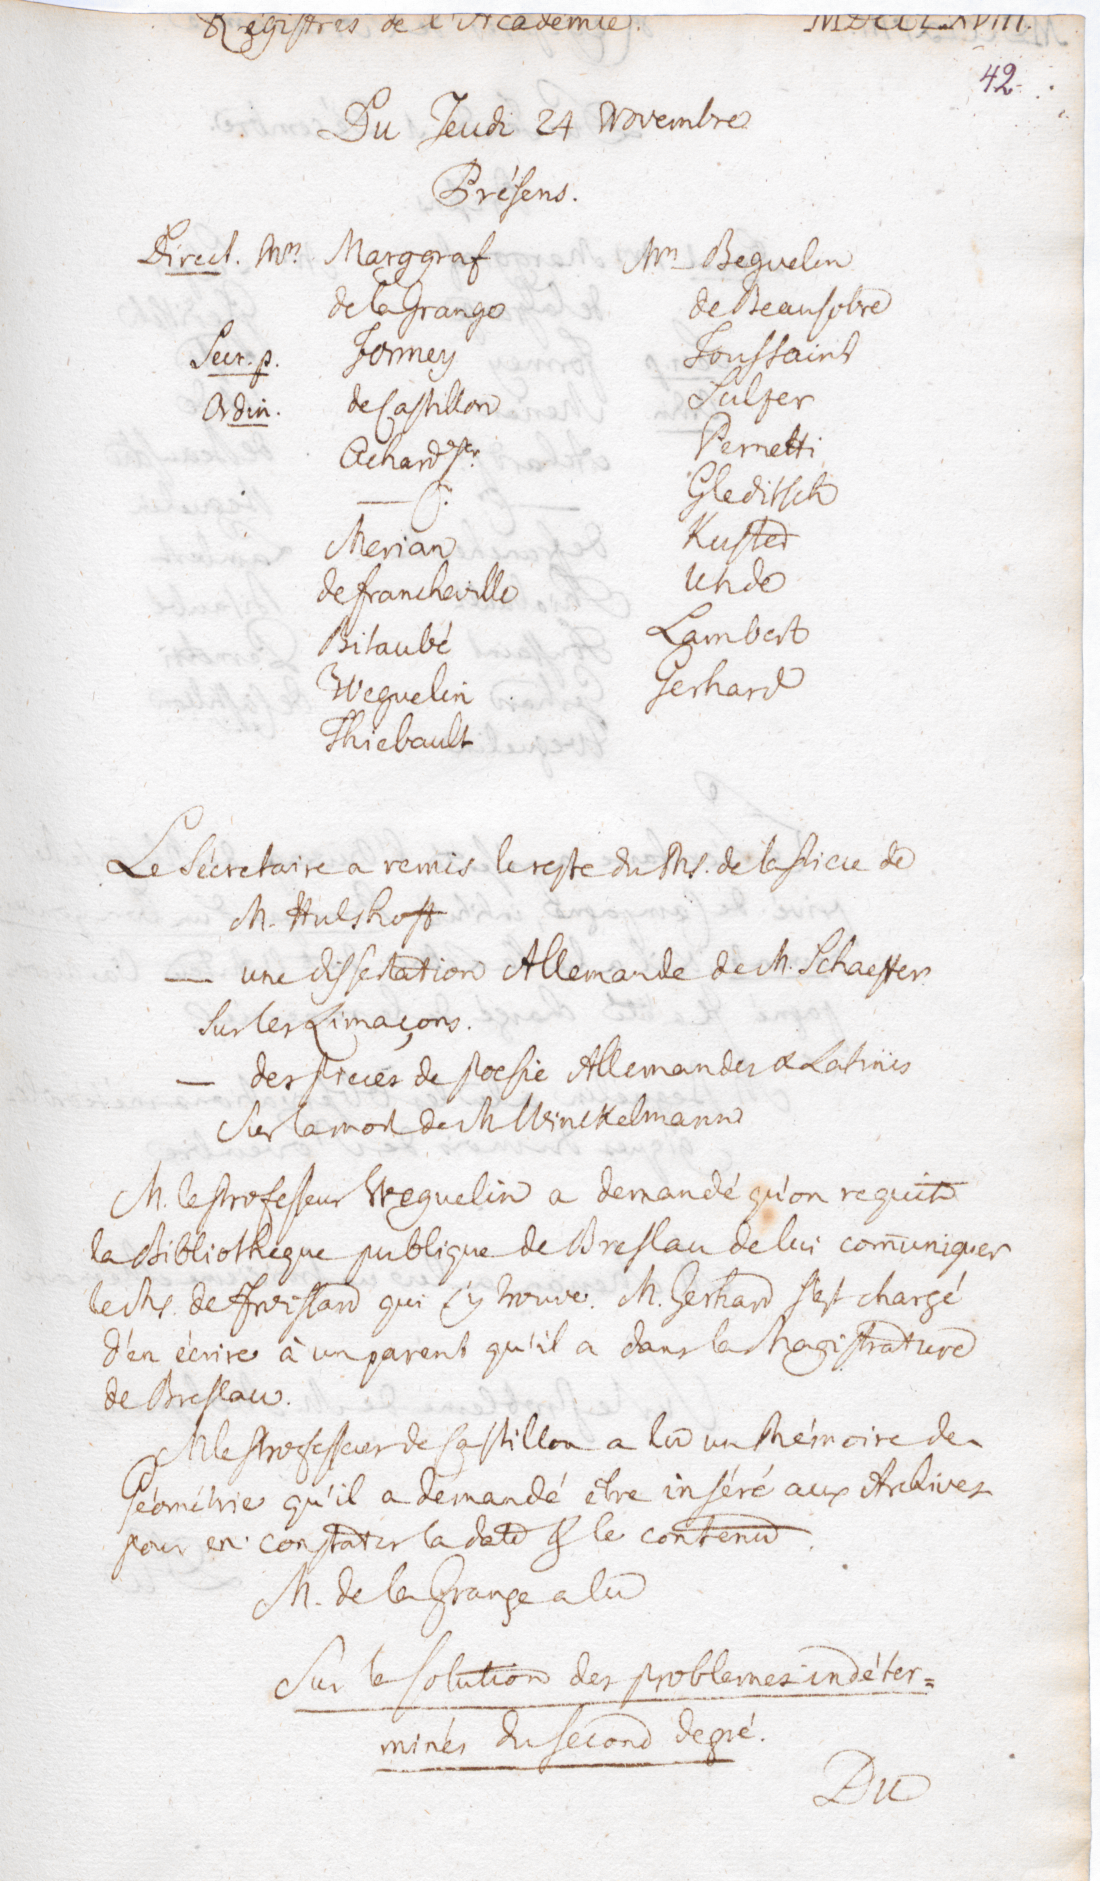 Régistres de l'Académie. MDCCLXVIII.
42.
Du Jeudi 24 Novembre
Présens.
Direct. Mrs. Marggraf
de la Grange
Secr. p. Formey
Ordin. de Castillon
Achard Sr.
Merian
de Francheville
Bitaubé
Weguelin
Thiebault
Mrs Beguelin
de Beausobre
Toussaint
Sulzer
Pernetti
Gleditsch
Kuster
Uhde
Lambert
Gerhard
Le Sécretaire a remis le reste du Ms. de la Piece de
M. Hulshoff
— une dissertation Allemande de M. Schaeffer
sur les Limaçons.
— des pieces de poesie Allemandes & Latines
sur la mort de M Winckelmann
M. le Professeur Weguelin a demandé qu'on requit
la Bibliothèque publique de Breslau de lui com̄uniquer
le Ms. de Froissard qui s'y trouve. M. Gerhard s'est chargé
d'en écrire à un parent qu'il a dans la Magistrature
de Breslau.
M le Professeur de Castillon a lu un Mémoire de
Géométrie qu'il a demandé être inséré aux Archives
pour en constater la date & le contenu.
M. de la Grange a lu
Sur la solution des problemes indéter=
minés du second degré.
Du